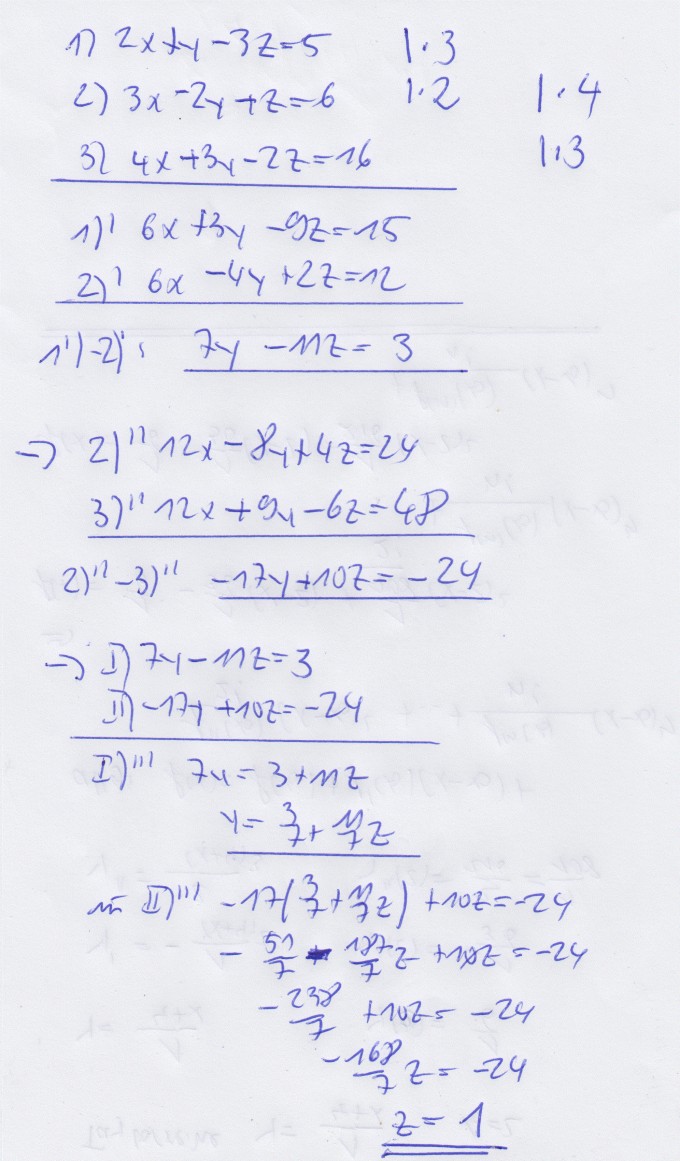 1) 2x+y-3z=5 |·3
2) 3x-2y+z=6 |·2 |·4
3) 4x+3y-2z=16 |·3
1)' 6x+3y-9z=15
2)' 6x-4y+2z=12
1')-2)': 7y-11z=3
→ 2)'' 12x-8y+4z=24
3)'' 12x+9y-6z=48
2)''-3)'' -17y+10z=-24
→ I) 7y-11z=3
II) -17y+10z=-24
I)''' 7y=3+11z
y=3/7+11/7z
in II)''' -17(3/7+11/7z)+10z=-24
-51/7-187/7z+10z=-24
-238/7+10z=-24
-168/7z=-24
z=1